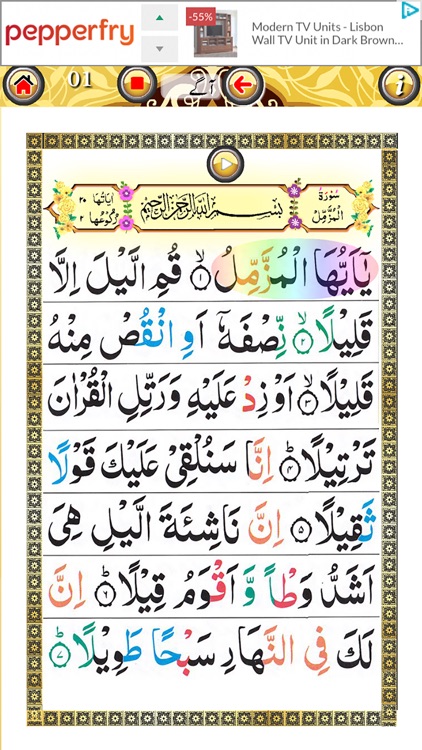 pepperfry
-55%
Modern TV Units - Lisbon
Wall TV Unit in Dark Brown...
01
آگے
i
سُوْرَةُ الْمُزَّمِّلِ
بِسْمِ اللّٰهِ الرَّحْمٰنِ الرَّحِيْمِ
اٰيَاتُهَا ٢٠
رُكُوْعُهَا ٢
يٰۤاَيُّهَا الْمُزَّمِّلُ ۙ‏١ قُمِ الَّيْلَ اِلَّا
قَلِيْلًا ۙ‏٢ نِّصْفَهٗۤ اَوِ انْقُصْ مِنْهُ
قَلِيْلًا ۙ‏٣ اَوْ زِدْ عَلَيْهِ وَرَتِّلِ الْقُرْاٰنَ
تَرْتِيْلًا ؕ‏٤ اِنَّا سَنُلْقِيْ عَلَيْكَ قَوْلًا
ثَقِيْلًا ‏٥ اِنَّ نَاشِئَةَ الَّيْلِ هِيَ
اَشَدُّ وَطْاً وَّ اَقْوَمُ قِيْلًا ؕ‏٦ اِنَّ
لَكَ فِي النَّهَارِ سَبْحًا طَوِيْلًا ؕ‏٧